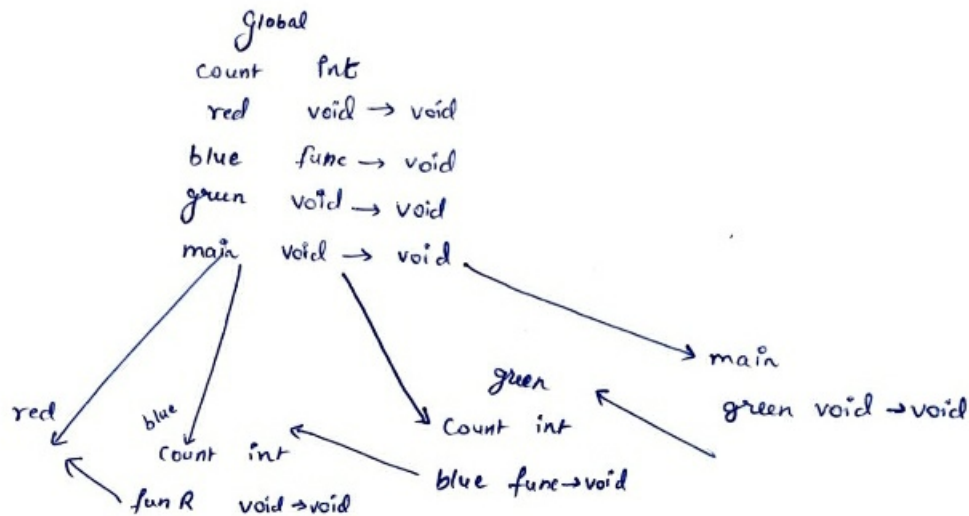 Global
count int
red void → void
blue func → void
green void → void
main void → void
main
green
green void → void
red
blue
count int
count int
blue func → void
fun R void → void